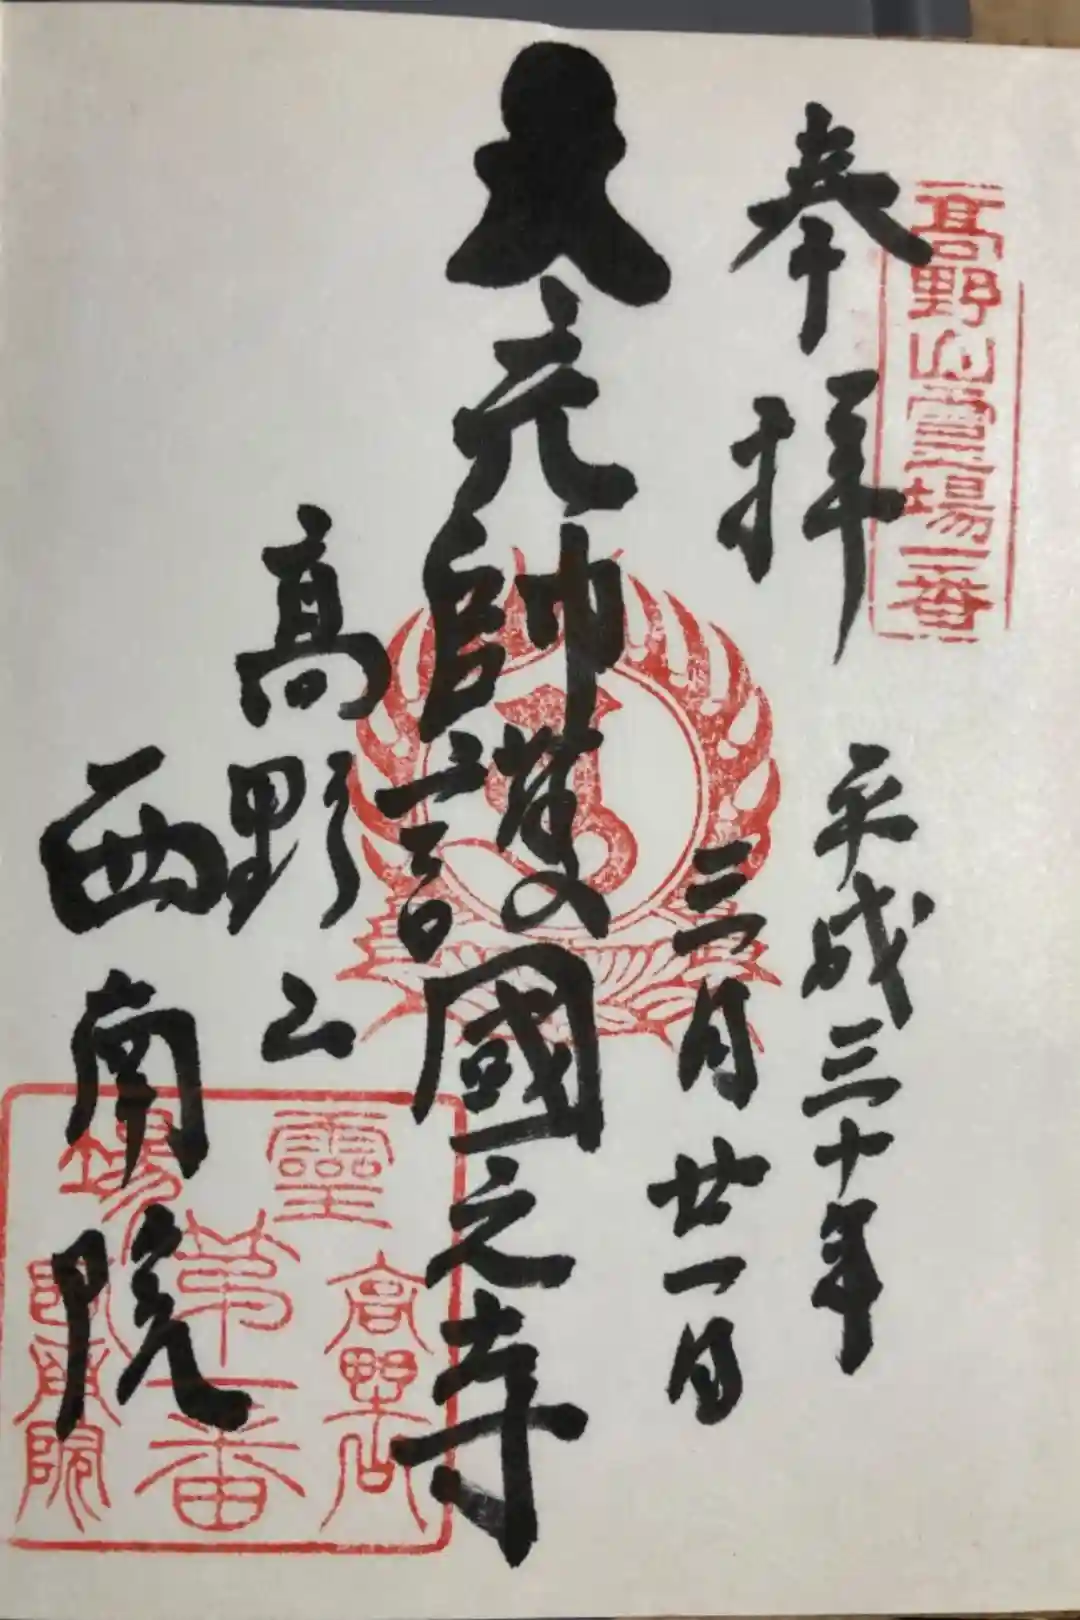 高野山霊場一番
奉拝
平成三十年
三月廿一日
太元帥護國之寺
高野山
西南院
高野山
靈場
第一番
西南院